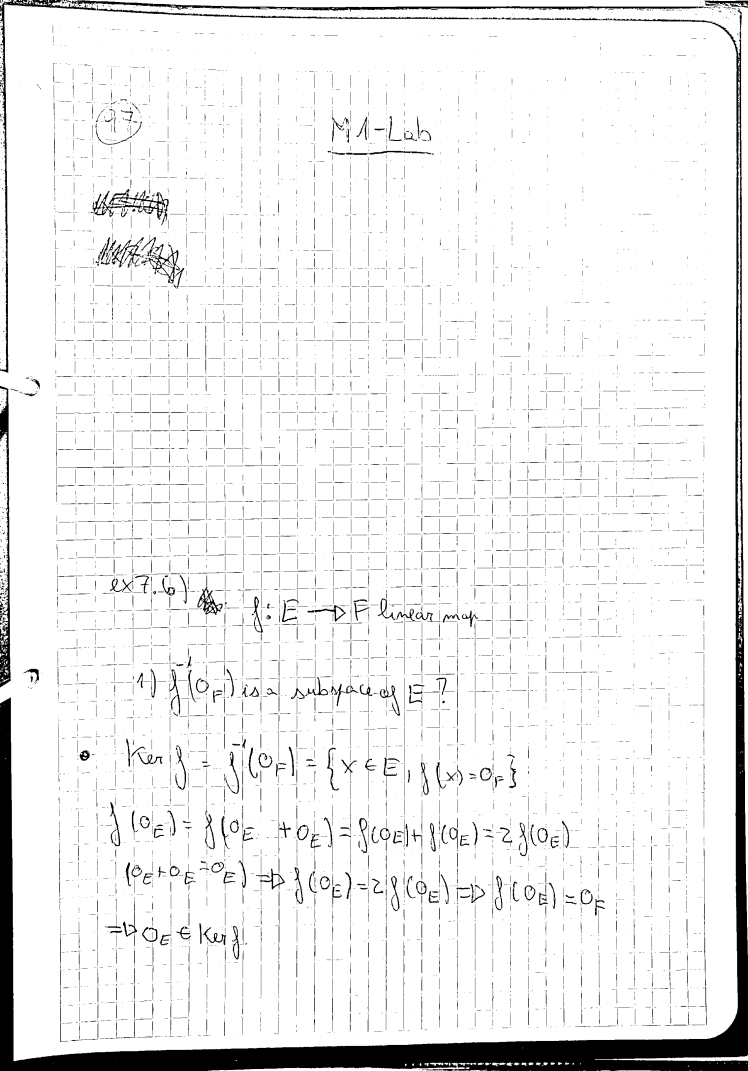 97
M1-Lab
ex 7.6)
f: E → F linear map
1) f⁻¹(0_F) is a subspace of E ?
• Ker f = f⁻¹(0_F) = {x ∈ E, f(x) = 0_F}
f(0_E) = f(0_E + 0_E) = f(0_E) + f(0_E) = 2f(0_E)
(0_E + 0_E = 0_E) ⇒ f(0_E) = 2f(0_E) ⇒ f(0_E) = 0_F
⇒ 0_E ∈ Ker f